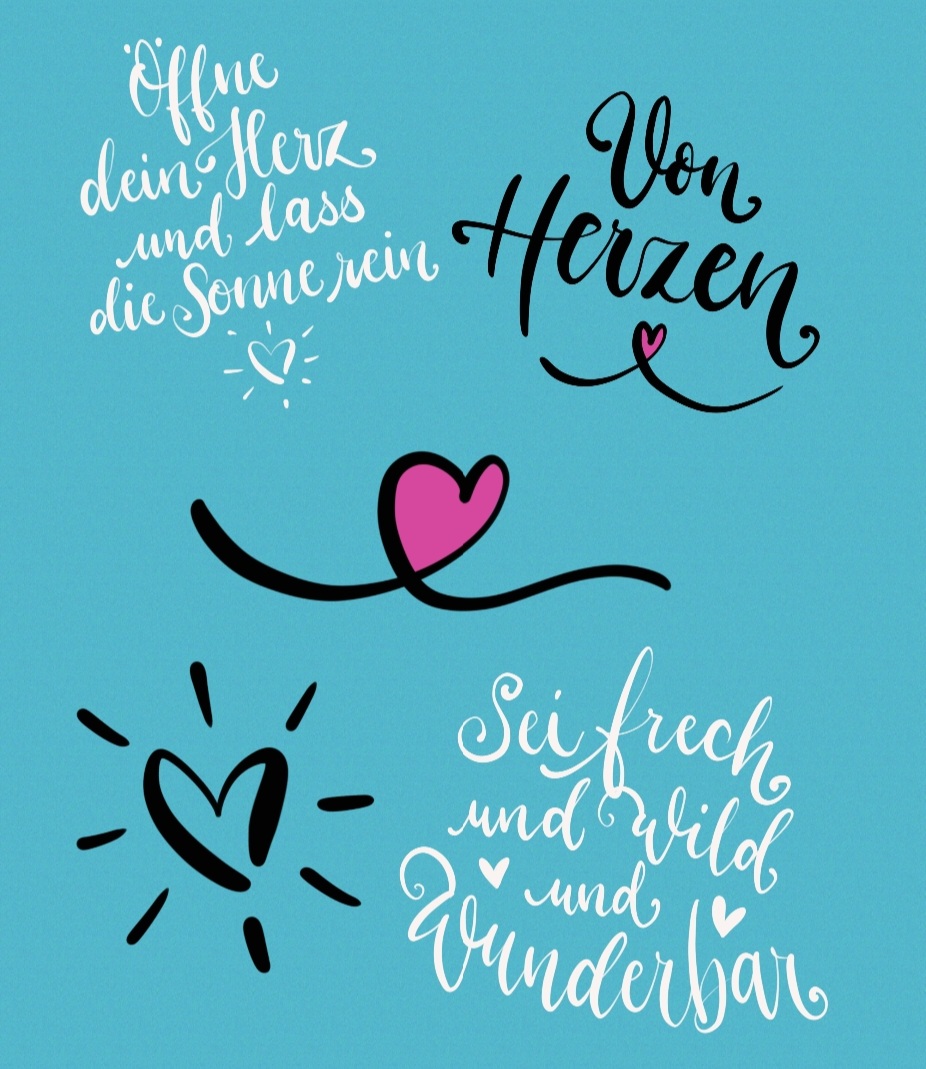 Öffne
dein Herz
und lass
die Sonne rein
Von
Herzen
Sei frech
und wild
und
Wunderbar